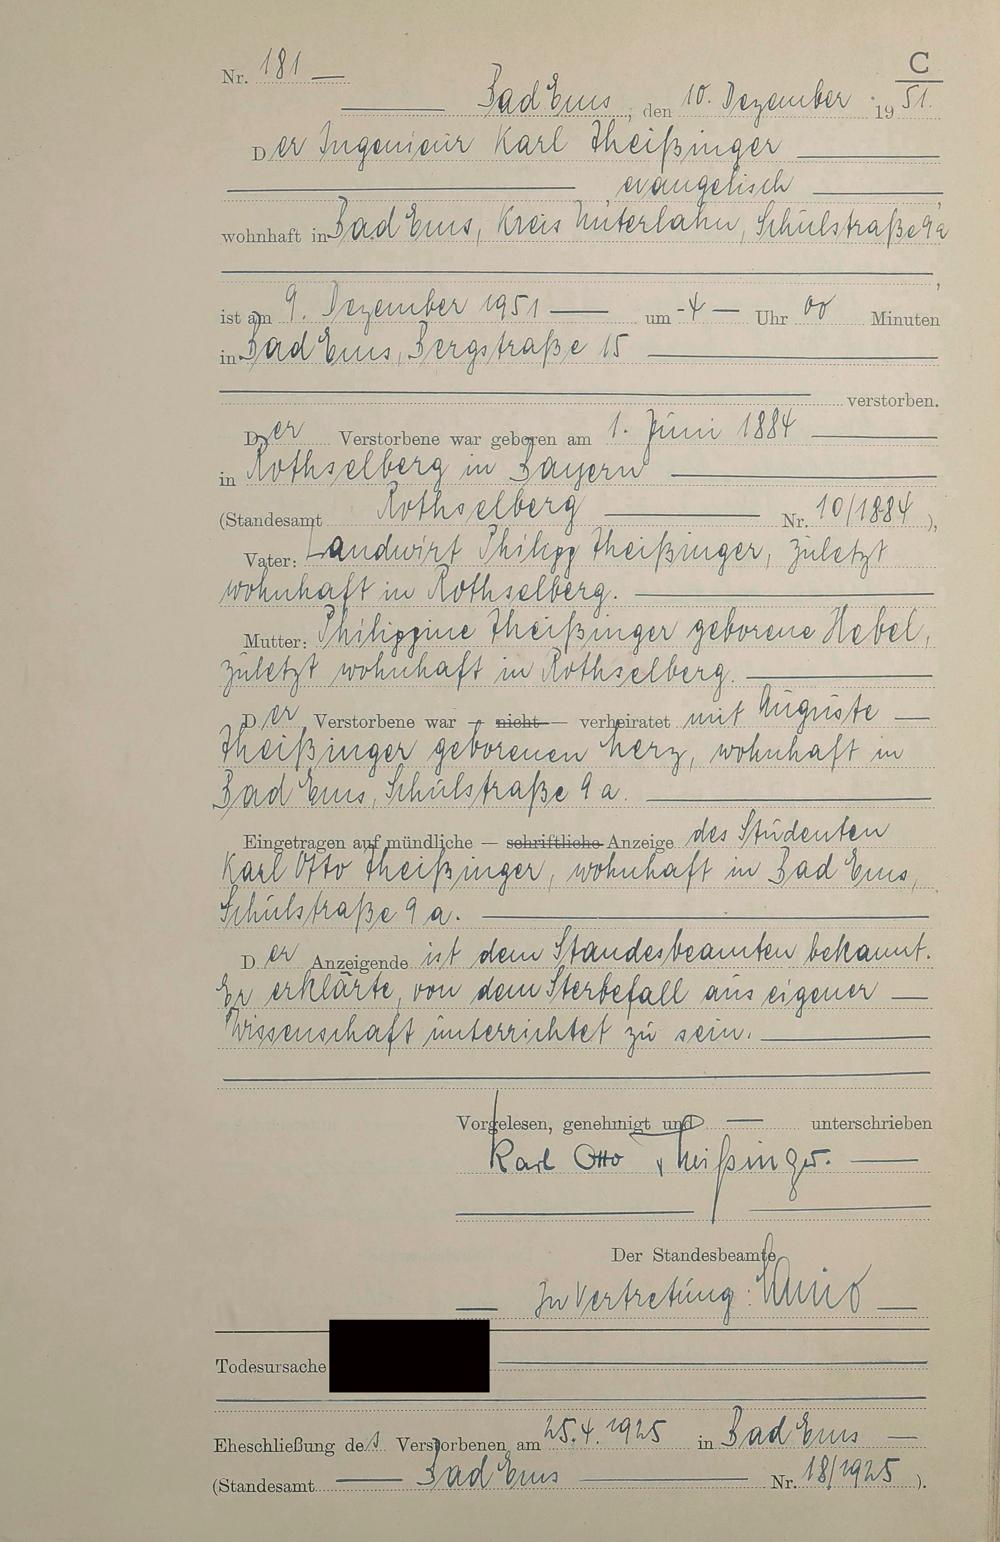 C
Nr. 181
Bad Ems, den 10. Dezember 1951.
Der Ingenieur Karl Theißinger
evangelisch
wohnhaft in Bad Ems, Kreis Unterlahn, Schulstraße 9a
ist am 9. Dezember 1951 um 4 Uhr 00 Minuten
in Bad Ems, Bergstraße 15
verstorben.
Der Verstorbene war geboren am 1. Juni 1884
in Rothselberg in Bayern
(Standesamt Rothselberg Nr. 10/1884),
Vater: Landwirt Philipp Theißinger, zuletzt
wohnhaft in Rothselberg.
Mutter: Philippine Theißinger geborene Hebel,
zuletzt wohnhaft in Rothselberg.
Der Verstorbene war — nicht — verheiratet mit Auguste
Theißinger geborenen Herz, wohnhaft in
Bad Ems, Schulstraße 9a.
Eingetragen auf mündliche — schriftliche Anzeige des Studenten
Karl Otto Theißinger, wohnhaft in Bad Ems,
Schulstraße 9a.
Der Anzeigende ist dem Standesbeamten bekannt.
Er erklärte, von dem Sterbefall aus eigener
Wissenschaft unterrichtet zu sein.
Vorgelesen, genehmigt und unterschrieben
Karl Otto Theißinger.
Der Standesbeamte
In Vertretung:
Todesursache
Eheschließung des Verstorbenen am 25.4.1925 in Bad Ems
(Standesamt Bad Ems Nr. 18/1925).